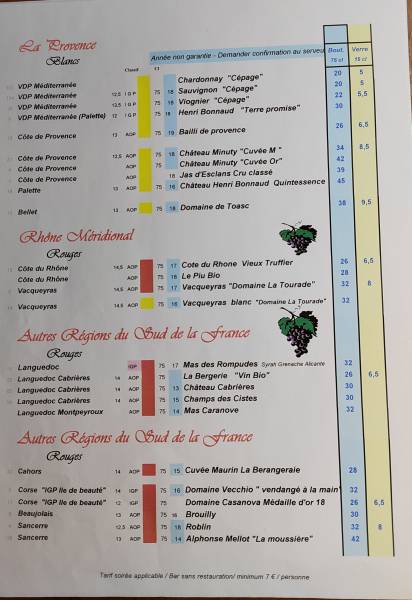 La Provence
Blancs
Année non garantie - Demander confirmation au serveur
Bout. Verre
75 cl 15 cl
Classif cl
VDP Méditerranée 12,5 IGP 75 18 Chardonnay "Cépage" 20 5
VDP Méditerranée 12 IGP 75 18 Sauvignon "Cépage" 20 5
VDP Méditerranée 13,5 IGP 75 18 Viognier "Cépage" 22 5,5
VDP Méditerranée (Palette) 12 IGP 75 18 Henri Bonnaud "Terre promise" 30
Côte de Provence 13 AOP 75 19 Bailli de provence 26 6,5
Côte de Provence 12,5 AOP 75 18 Château Minuty "Cuvée M " 34 8,5
Côte de Provence AOP 75 Château Minuty "Cuvée Or" 42
Côte de Provence AOP 18 Jas d'Esclans Cru classé 39
Palette 13 AOP 75 16 Château Henri Bonnaud Quintessence 45
Bellet 13 AOP 75 18 Domaine de Toasc 38 9,5
Rhône Méridional
Rouges
Côte du Rhône 14,5 AOP 75 17 Cote du Rhone Vieux Truffier 26 6,5
Côte du Rhône AOP 75 16 Le Piu Bio 28
Vacqueyras 14,5 AOP 75 Vacqueyras "Domaine La Tourade" 32 8
Vacqueyras 14,5 AOP 75 16 Vacqueyras blanc "Domaine La Tourade" 32
Autres Régions du Sud de la France
Rouges
Languedoc IGP 75 17 Mas des Rompudes Syrah Grenache Alicante 32
Languedoc Cabrières 14 AOP 75 La Bergerie "Vin Bio" 26 6,5
Languedoc Cabrières AOP 75 13 Château Cabrières 30
Languedoc Cabrières 14 AOP 75 15 Champs des Cistes 30
Languedoc Montpeyroux AOP 75 14 Mas Caranove 32
Autres Régions du Sud de la France
Rouges
Cahors 14 AOP 75 15 Cuvée Maurin La Berangeraie 28
Corse "IGP Ile de beauté" 14 AOP 75 16 Domaine Vecchio " vendangé à la main" 32
Corse "IGP Ile de beauté" 12 IGP 75 Domaine Casanova Médaille d'or 18 26 6,5
Beaujolais 13 AOP 75 16 Brouilly 30
Sancerre 12,5 AOP 75 18 Roblin 32 8
Sancerre 13 AOP 75 14 Alphonse Mellot "La moussière" 42
Tarif soirée applicable / Bar sans restauration/ minimum 7 € / personne